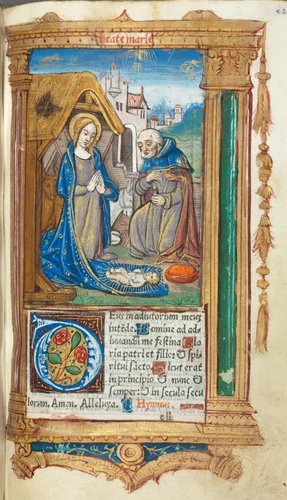 beate marie
Eus in adiutorium meuz
intēde. Domine ad ad-
iuuandū me festina Glo
ria patri et filio: & spi-
ritui sācto. Sicut erat
in principio & nunc &
semper: & in secula secu
lorum. Amen. Alleluya. Hymnus.